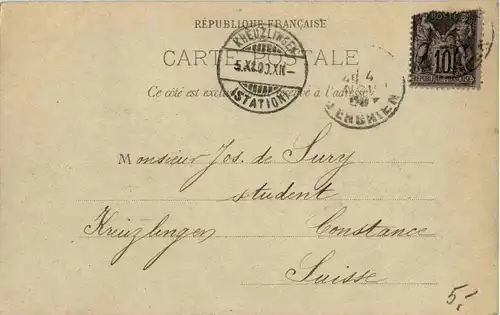 RÉPUBLIQUE FRANÇAISE
CARTE POSTALE
KREUZLINGEN
5.XI.99.XII–
(STATION)
4
NOV
99
ENGHIEN
10
REPUBLIQUE FRANÇAISE
Ce côté est exclusivement réservé à l'adresse
Monsieur Jos. de Sury
student
Kreuzlingen Constance
Suisse
5.'